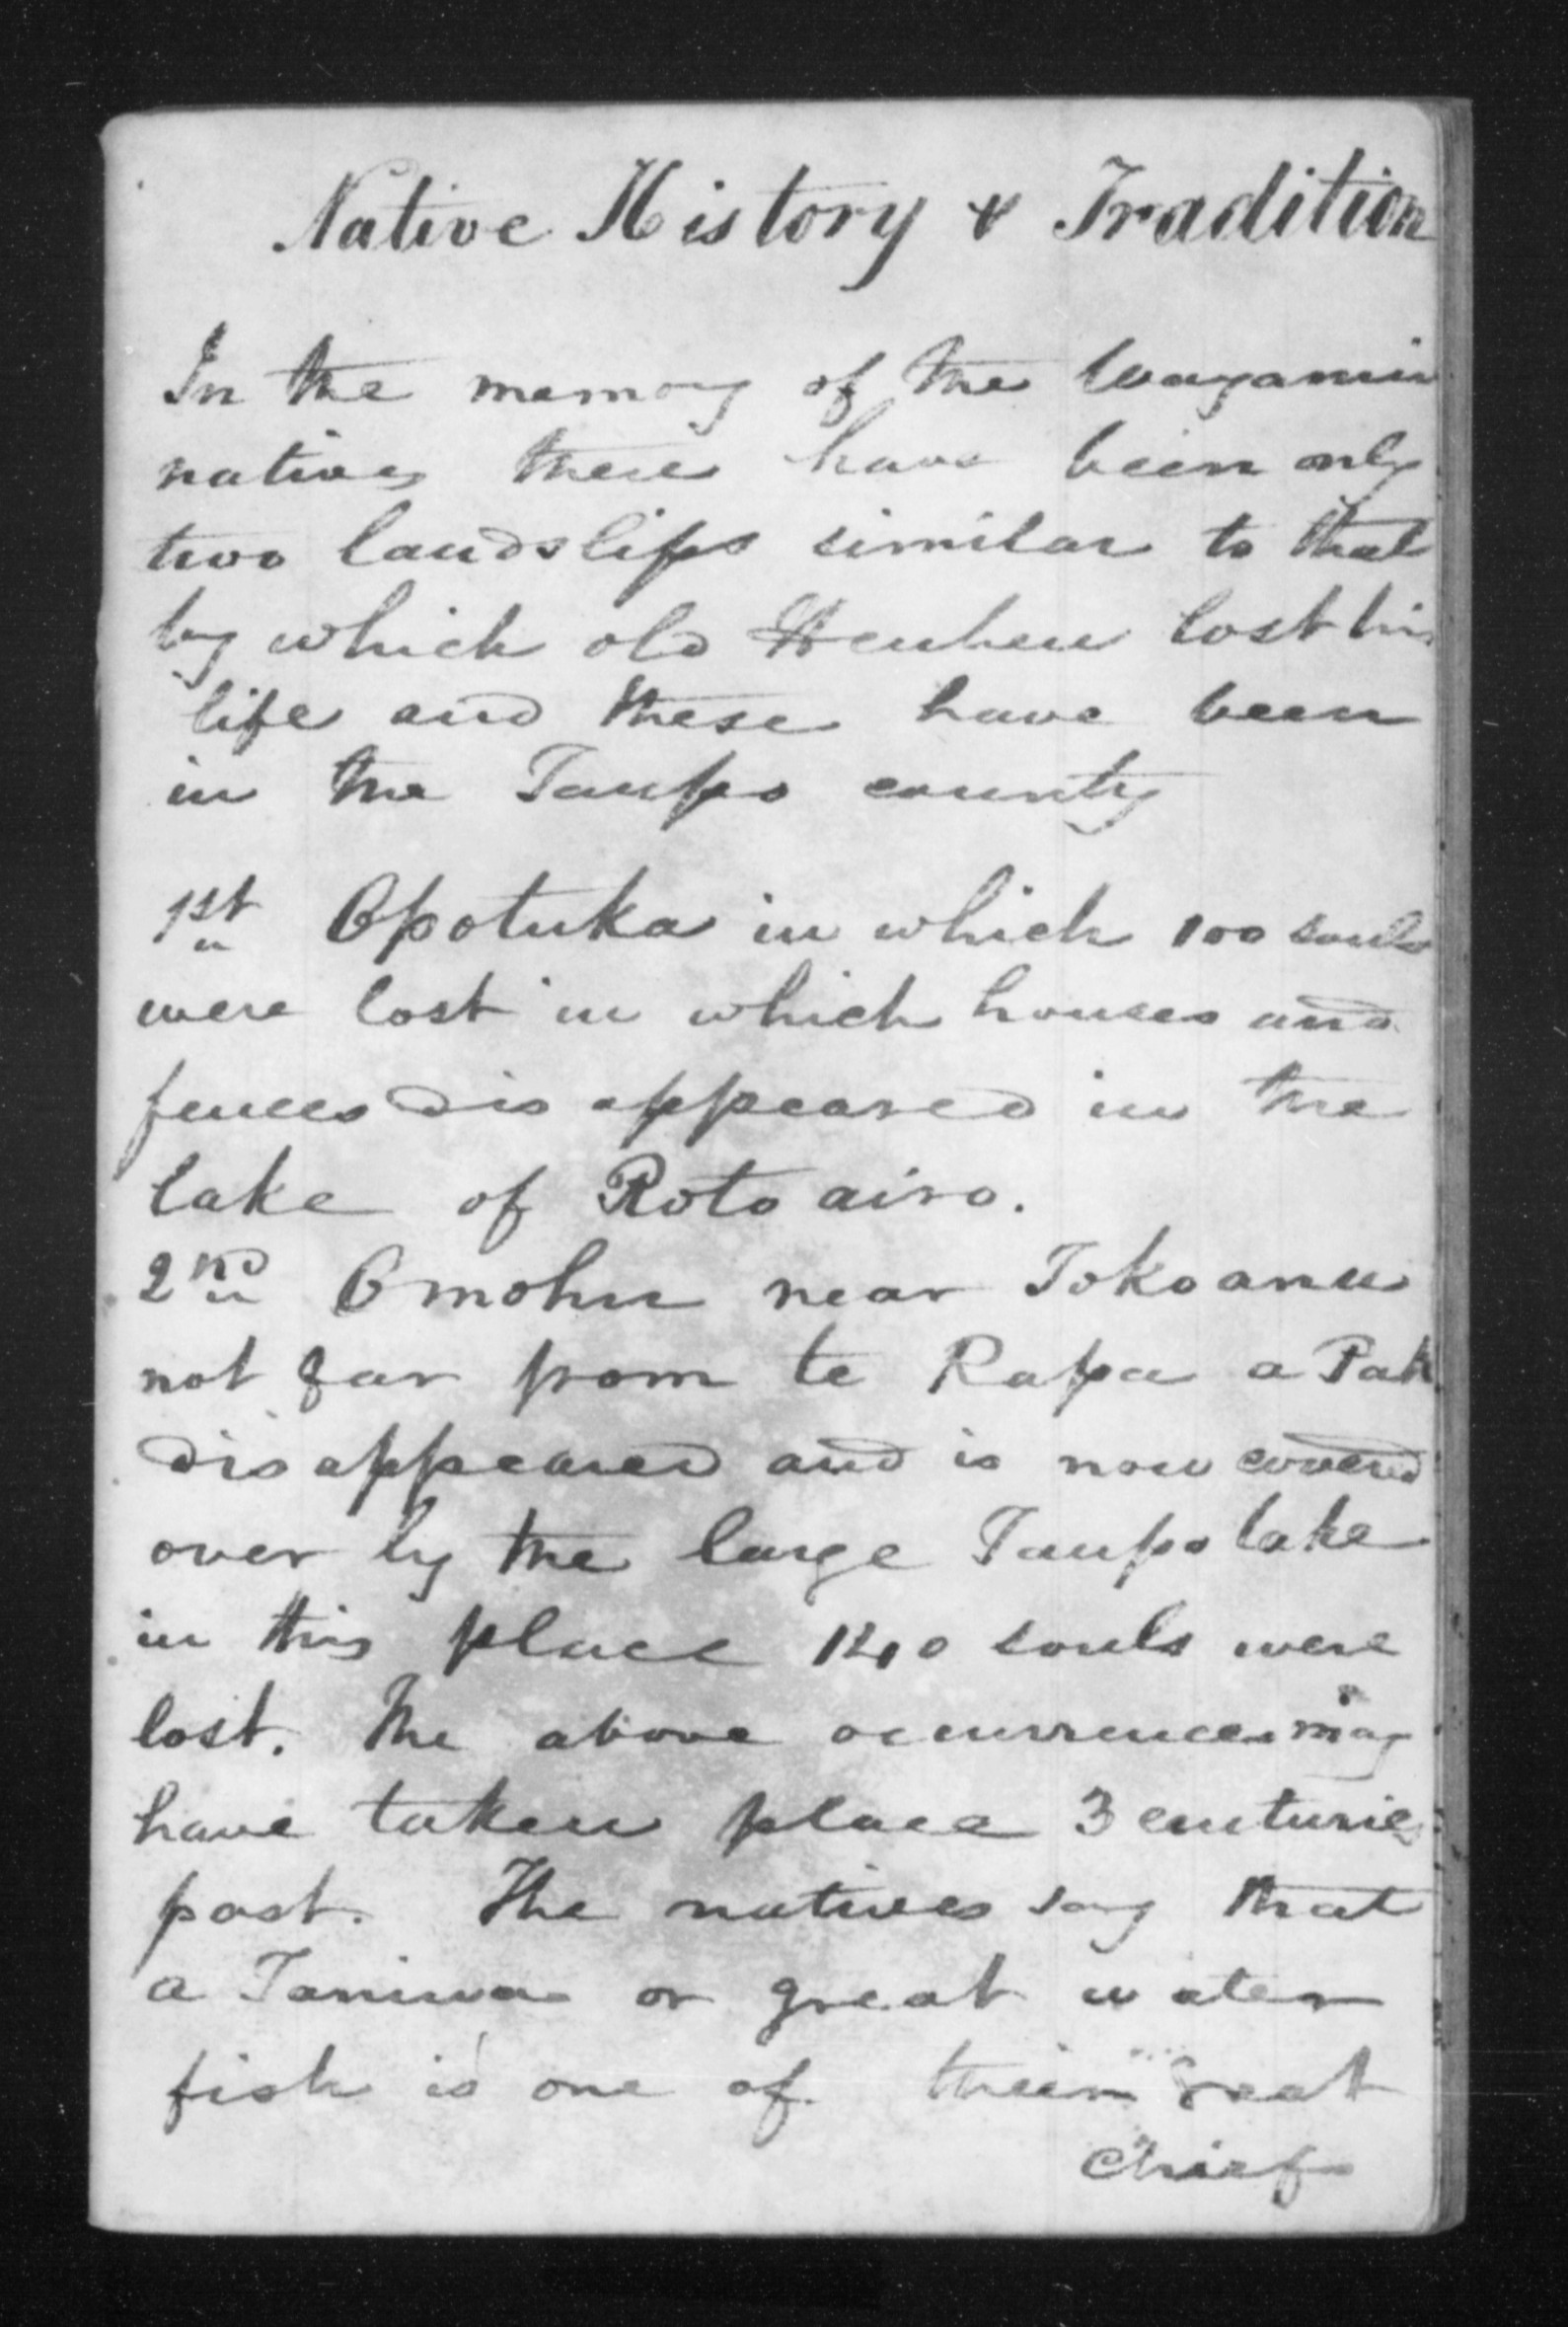 Native History & Tradition
In the memory of the
natives there have been only
two landslips similar to that
by which old Heuheu lost his
life and these have been
in the Taupo county
1st Opotuka in which 100 souls
were lost in which houses and
fences disappeared in the
lake of Roto airo.
2nd Omohu near Tokoanu
not far from te Rapa a Pah
disappeared and is now covered
over by the large Taupo lake
in this place 140 souls were
lost. The above occurrences may
have taken place 3 centuries
past. The natives say that
a Taniwa or great water
fish is one of their Great
Chief